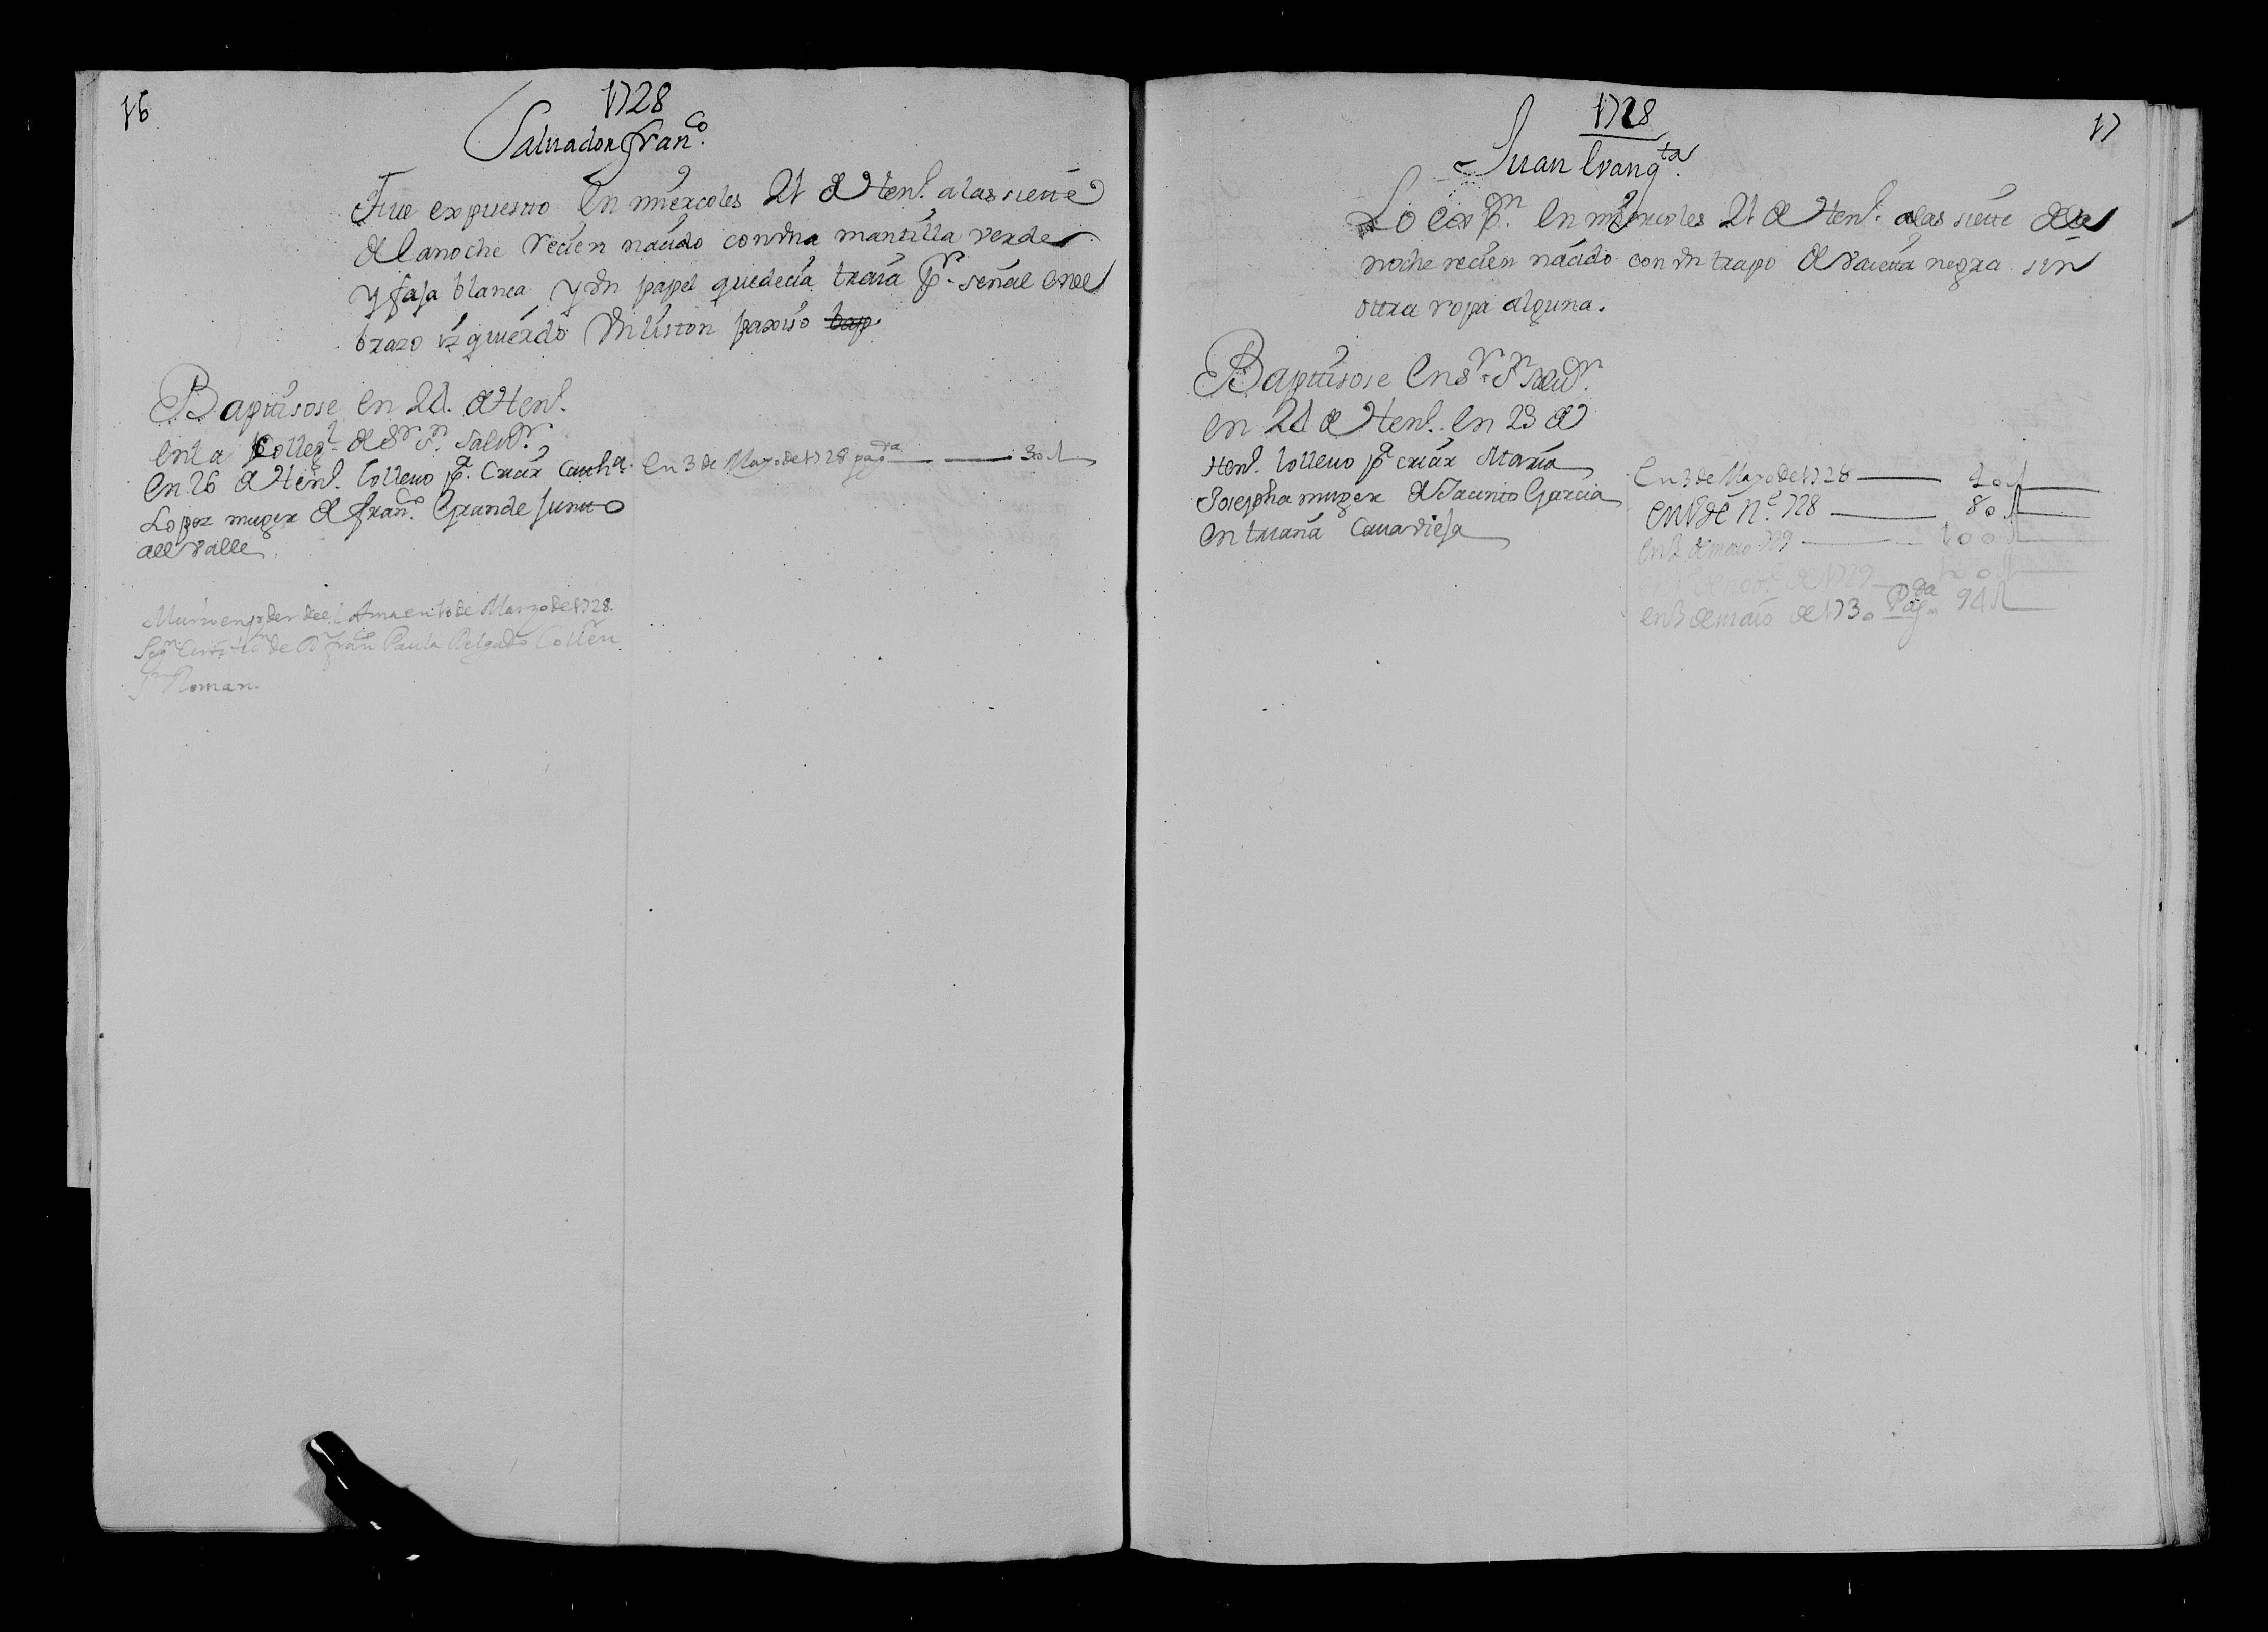 16
1728
Salvador Fran.co
Fue expuesto En miercoles 21 de Hen.o a las siette
de la noche recien nacido con vna mantilla verde
y faja blanca y vn papel que decia traia p.r señal en el
brazo yzquierdo Vn liston paxiso bap
Baptisose en 24. de Hen.o
En la Colleg.l de S.r S.n Salu.or
en 26 de Hen.o lo lleuo p.a criar
Lopez muger de fran.co Grande junto
al valle
En 3 de Mayo de 1728 pag.da 30 r
Murio en poder de el Ama en 10 de Marzo de 1728.
Seg.n Certific.on de D.n Fran.co Paula Delgado Coll.r en
S.n Roman.
17
1728
Juan Evang.ta
Lo exp.n En miercoles 21 de Hen.o a las siette de la
noche recien nacido con vn trapo de vaietta negra sin
ottra ropa alguna.
Baptisose En S.r S.n Salu.or
en 24 de Hen.o En 23 de
Hen.o lo lleuo p.a criar Maria
Josepha muger de Jacinto Garcia
En triana Caua vieja
En 3 de Mayo de 1728 40 r
en 1º de N.e 728 80 r
en 2 de maio 729 100 r
en 1º de nob.e de 1729
en 3 de maio de 1730 Pag.da 94 r